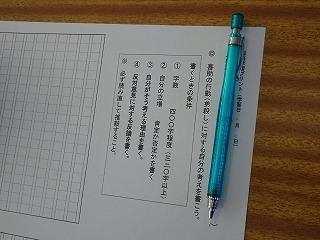 ◎　喜助の行動（弟殺し）に対する自分の考えを書こう。
書くときの条件
①　字数　四〇〇字程度（三二〇字以上）
②　自分の立場　肯定か否定かを書く
③　自分がそう考える理由を書く。
④　反対意見に対する反論を書く。
※　必ず読み直して推敲すること。